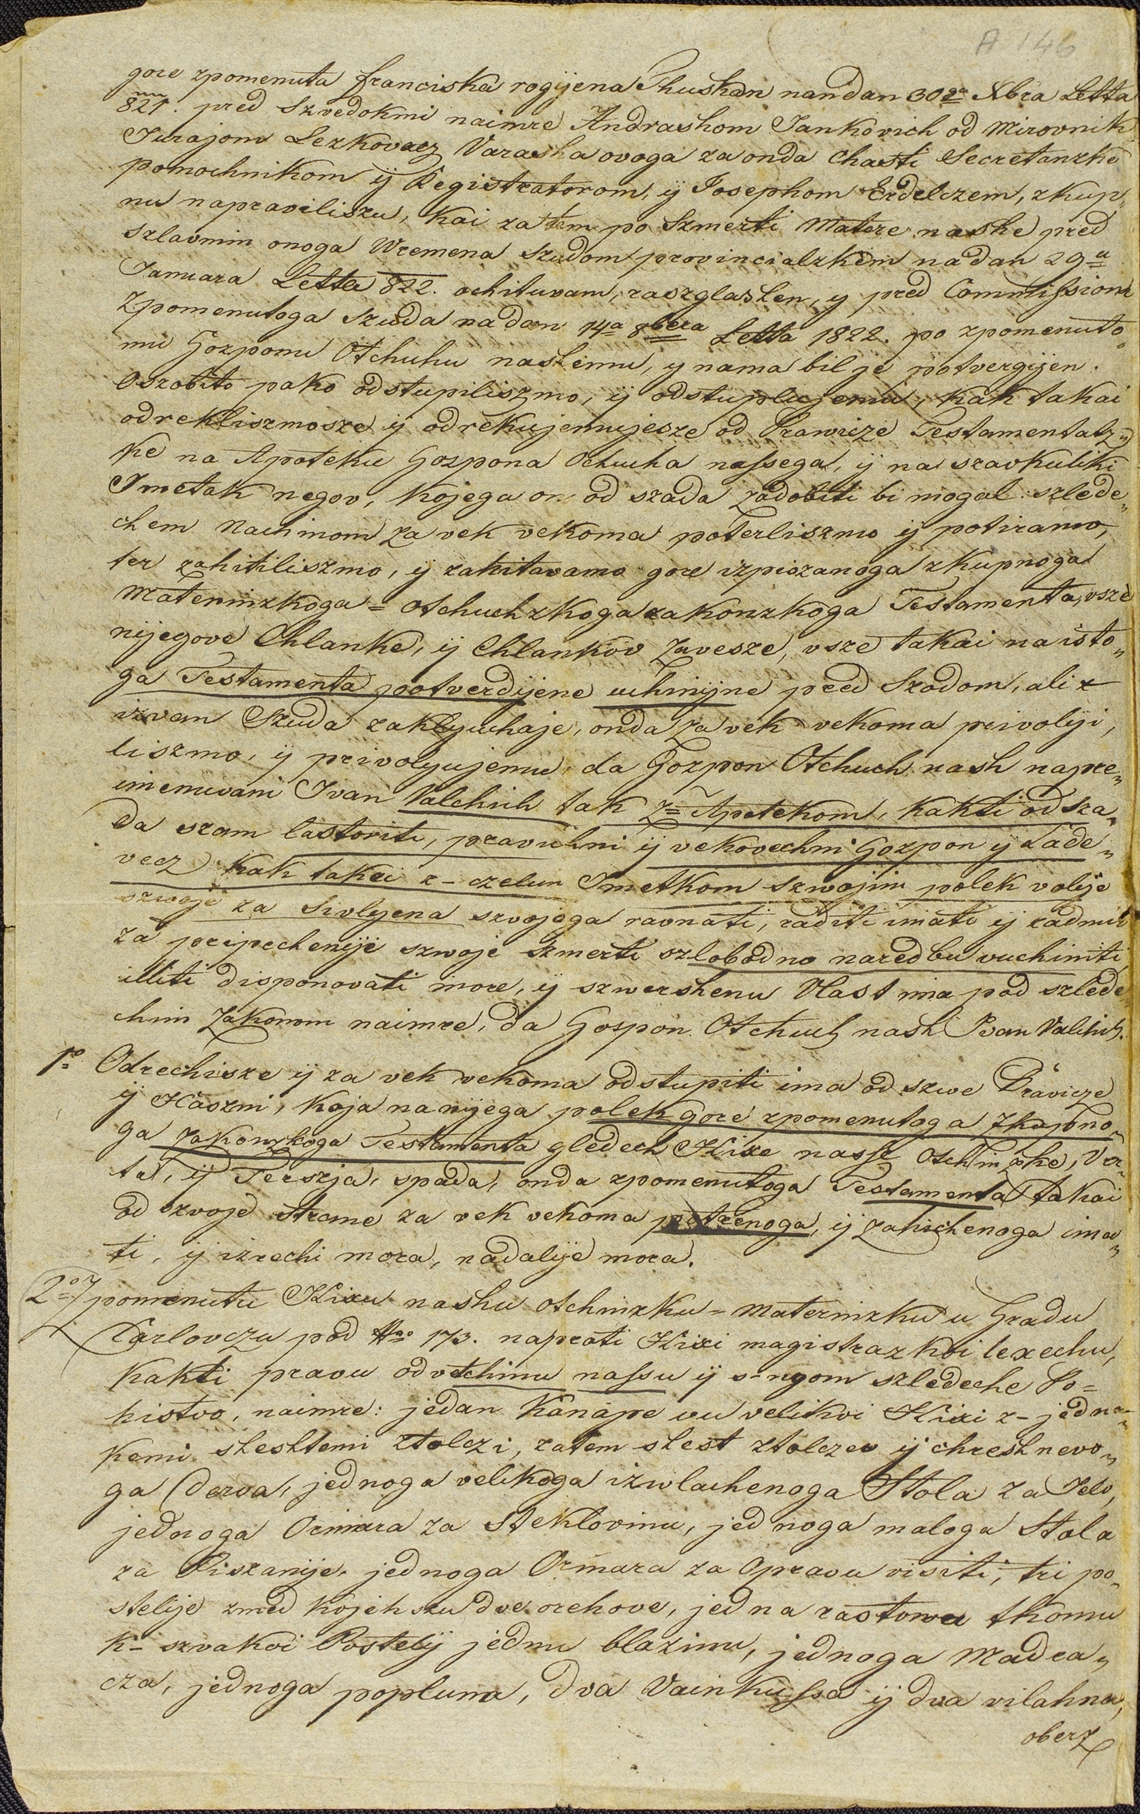 A 146
gore zpomenuta Franciska rogijena Thushan nandan 30ga Xbra Letta
821. pred Szvedokmi naimre Andrashom Jankovich od Mirovnik
Jurajom Lezkovacz Varasha ovoga za onda Chasti Secretarzke
pomochnikom ij Registratorom, ij Josephom Erdelczem, zkup„
nu napraviliszu, kai zatem po Szmerti Matere nashe pred
szlavnim onoga Wremena Szudom provincialzkem nadan 29ga
Januara Letta 822. ochituvam, raszglashen, y pred Commissiom
Zpomenutoga Szuda nadan 14a 8bera Letta 1822. po zpomenuto„
mu Gozponu Otchuhu nashemu, y nama bil je potvergijen.
Oszobito pako odstupiliszmo, ij odstuplujemo, kak takai
odrekliszmosze ij odrekujemujesze od Pravicze Testamentalz„
ke na Apoteku Gozpona Ochuha nassega, ij na szavkuliki
Imetak negov, kojega on od szada zadobiti bi mogal szlede„
chem Nachinom za vek vekoma poterliszmo ij potiramo,
ter zahitiliszmo, ij zahitavamo gore izpiszanoga zkupnoga
Materinzkoga = Otchuchzkoga zakonzkoga Testamenta, vsze
nijegove Chlanke, ij Chlankov Zavesze, vsze takai na isto„
ga Testamenta potverdijene uchinijne pred Szudom, ali z
vzvan Szuda zaklyuchaje, onda za vek vekoma privoliji,
liszmo, ij privolyujemo, da Gozpon Otchuch nash napre„
imenuvani Ivan Valchich tak Z= Apotekom, kakti od sza„
da szam lastoviti, pravichni ij vekovechni Gozpon ij Lade„
vecz kak takai z- czelim Imetkom szwojim polek volije
szwoje za sivlyena szvojega ravnati, raditi imati ij zadnich
za pripechenije szwoje szmerti szlobodno naredbu vuchiniti
illiti disponovati more, ij szwershenu Vlast ima pod szlede
chim Zakonom naimre, da Gospon Otchuch nash Ivan Valchich.
1o Odrechisze ij za vek vekoma odstupiti ima od szwe Pravicze
ij Haszni, koja na nijega polek gore zpomenutoga Zkupno„
ga zakonzkoga Testamenta gledech Hixe nasse Otchinzke, Ver„
ta, ij Terszja, spada, onda zpomenutoga Testamenta takai
od szvoje strane za vek vekoma potrenoga, ij zahichenoga ima„
ti, ij izrechi mora, nadalije mora.
2o Zpomenutu Hixu nashu otchinzku = Materinzku u Gradu
Karlovczu pod Nro 173. naprati Hixi magistrazkoi lexechu,
kakti pravu odvetchinu nassu ij s- nyom szledeche Po=
histvo, naimre: jedan Kanape vu velikoi Hixi z- jedna„
kemi sheshtemi ztolczi, zatem shest ztolczev ij chreshnevo„
ga Derva, jednoga velikoga izwlachenoga Stola za Jelo,
jednoga Ormara za Steklovinu, jednoga maloga Stola
za Piszanije, jednoga Ormara za Opravu visiti, tri po„
stelije zmed kojeh szu dve orehove, jedna rastowa tkomu
k- szvakoi Postely jednu blazinu, jednoga Madra„
cza, jednoga popluna, dva Vainkussa ij dva vilahna,
oberz